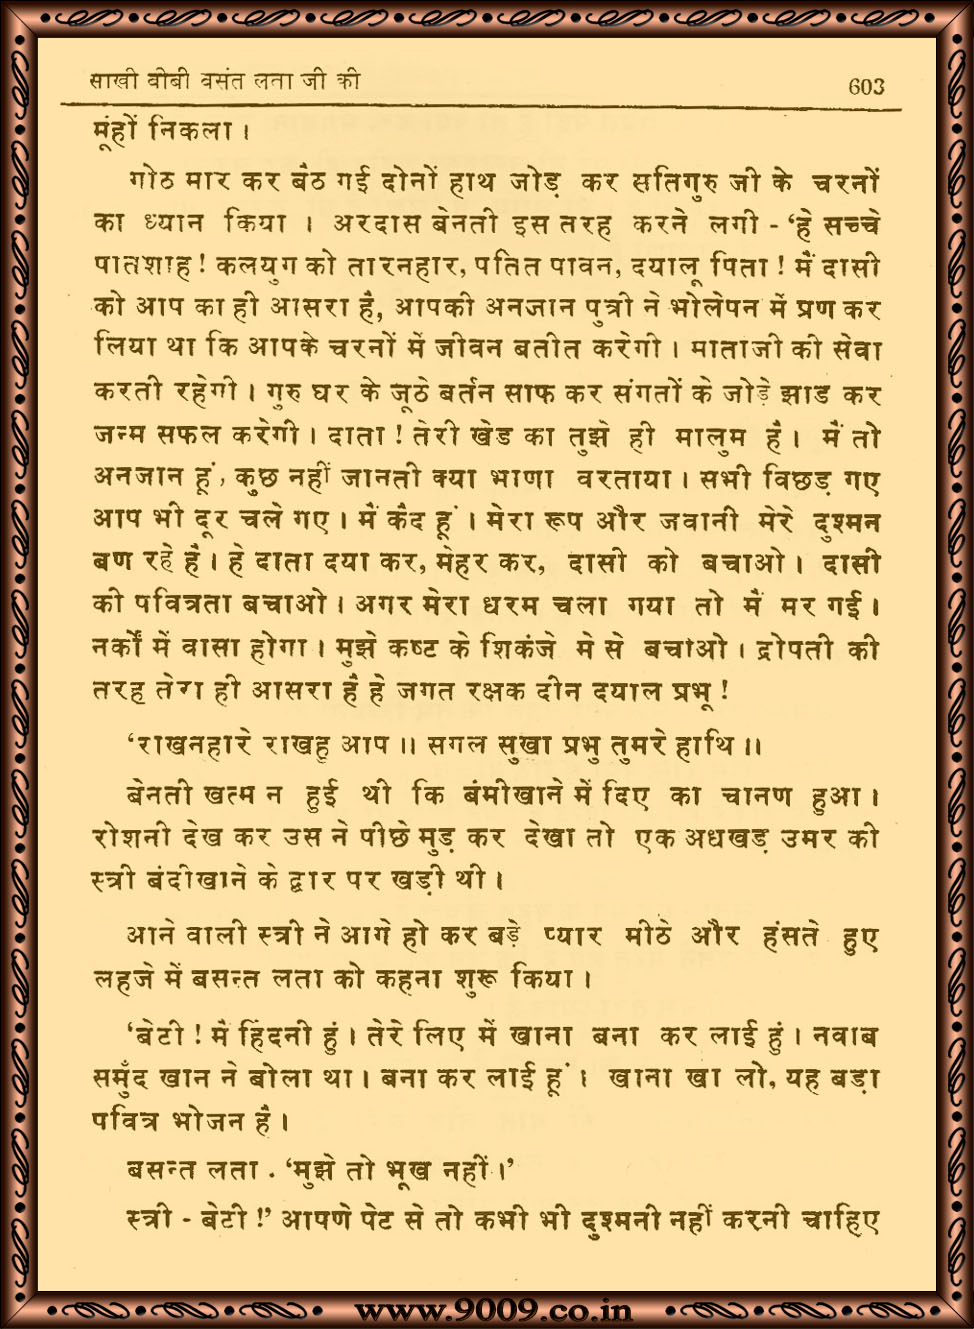 साखी बीबी वसंत लता जी की 603
मूंहों निकला ।
गोठ मार कर बैठ गई दोनों हाथ जोड़ कर सतिगुरु जी के चरनों
का ध्यान किया । अरदास बेनती इस तरह करने लगी - ‘हे सच्चे
पातशाह ! कलयुग को तारनहार, पतित पावन, दयालू पिता ! मैं दासी
को आप का ही आसरा है, आपकी अनजान पुत्री ने भोलेपन में प्रण कर
लिया था कि आपके चरनों में जीवन बतीत करेगी । माताजी की सेवा
करती रहेगी । गुरु घर के जूठे बर्तन साफ कर संगतों के जोड़े झाड कर
जन्म सफल करेगी । दाता ! तेरी खेड का तुझे ही मालुम है । मैं तो
अनजान हूं, कुछ नहीं जानती क्या भाणा वरताया । सभी विछड़ गए
आप भी दूर चले गए । मैं कैद हूं । मेरा रूप और जवानी मेरे दुश्मन
बण रहे हैं । हे दाता दया कर, मेहर कर, दासी को बचाओ । दासी
की पवित्रता बचाओ । अगर मेरा धरम चला गया तो मैं मर गई ।
नर्कों में वासा होगा । मुझे कष्ट के शिकंजे मे से बचाओ । द्रोपती की
तरह तेरा ही आसरा है हे जगत रक्षक दीन दयाल प्रभू !
‘राखनहारे राखहु आप ॥ सगल सुखा प्रभु तुमरे हाथि ॥
बेनती खत्म न हुई थी कि बंमीखाने में दिए का चानण हुआ ।
रोशनी देख कर उस ने पीछे मुड़ कर देखा तो एक अधखड़ उमर की
स्त्री बंदीखाने के द्वार पर खड़ी थी ।
आने वाली स्त्री ने आगे हो कर बड़े प्यार मीठे और हंसते हुए
लहजे में बसन्त लता को कहना शुरू किया ।
‘बेटी ! मैं हिंदनी हुं । तेरे लिए में खाना बना कर लाई हुं । नवाब
समुँद खान ने बोला था । बना कर लाई हूं । खाना खा लो, यह बड़ा
पवित्र भोजन है ।
बसन्त लता . ‘मुझे तो भूख नहीं ।’
स्त्री - बेटी !’ आपणे पेट से तो कभी भी दुश्मनी नहीं करनी चाहिए
www.9009.co.in